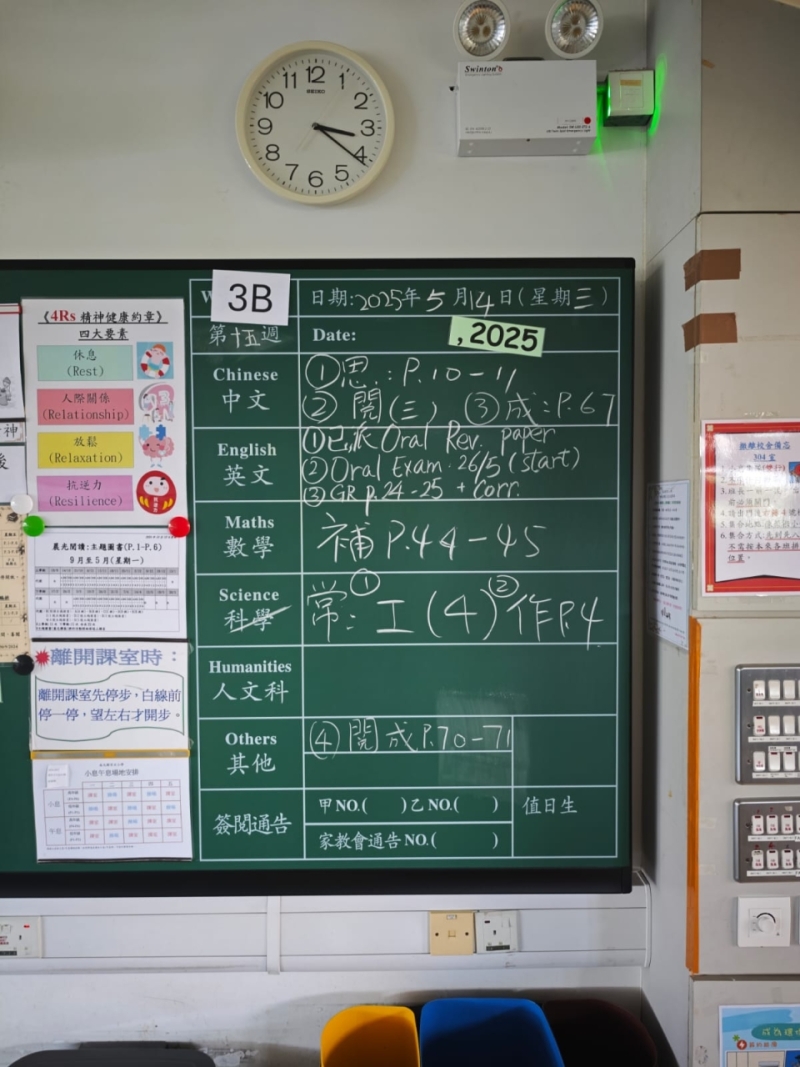 12
1
2
3
4
5
6
7
8
9
10
11
SEIKO
Swinton's
3B
日期:2025年5月14日(星期三)
第十五週
Date:
,2025
Chinese
中文
①思:P.10-11
②閱(三) ③成:P.67
English
英文
①已派 Oral Rev. paper
②Oral Exam. 26/5 (start)
③GR p.24-25 + Corr.
Maths
數學
補P.44-45
Science
科學
常:①工(4)②作P.4
Humanities
人文科
Others
其他
④閱成P.70-71
簽閱通告
甲NO.( )乙NO.( )
家教會通告NO.( )
值日生
《4Rs 精神健康約章》
四大要素
休息
(Rest)
人際關係
(Relationship)
放鬆
(Relaxation)
抗逆力
(Resilience)
晨光閱讀:主題圖書(P.1-P.6)
9月至5月(星期一)
離開課室時:
離開課室先停步,白線前
停一停,望左右才開步。
小息午息場地安排
小息
午息
304室